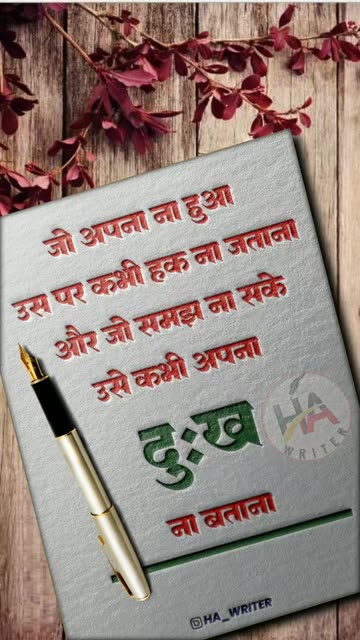 जो अपना ना हुआ
उस पर कभी हक ना जताना
और जो समझ ना सके
उसे कभी अपना
दुःख
ना बताना
HA
WRITER
@HA_WRITER